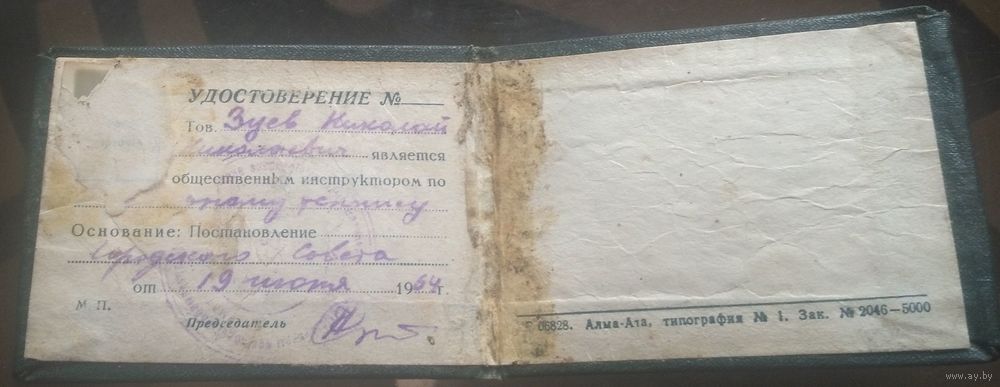 УДОСТОВЕРЕНИЕ №
Тов. Зуев Николай
Николаевич является
общественным инструктором по
теннису
Основание: Постановление
Городского Совета
от 19 июня 1964 г.
М П.
Председатель
06828. Алма-Ата, типография № 1. Зак. № 2046—5000
www.ay.by